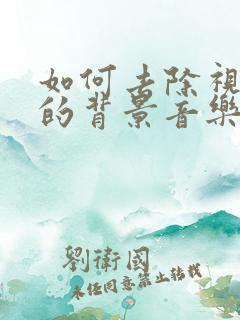 如何去除視
的背景音樂
劉衛國
未經同意禁止轉載